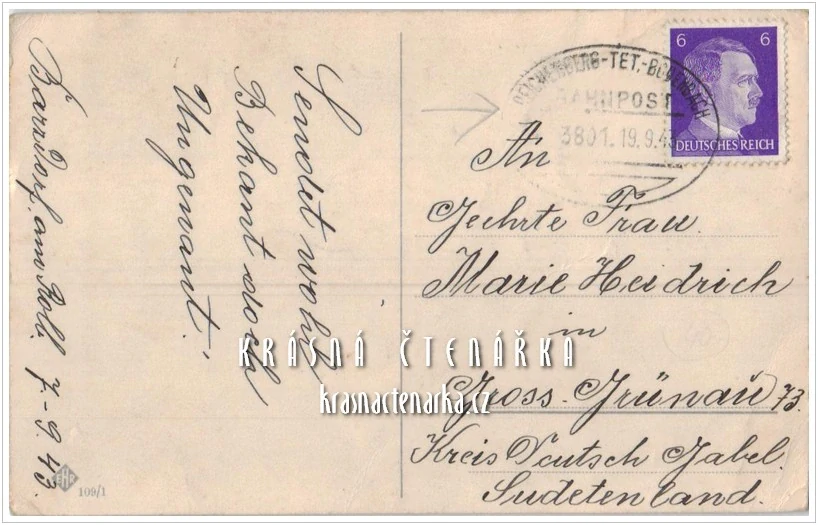 Barzdorf. am Roll. 7.-9.43.
Sendet wohl
Bekant doch
Ungenant.
REICHENBERG-TET.-BODENBACH
BAHNPOST
3801. 19.9.43
6 6
DEUTSCHES REICH
An
Geehrte Frau.
Marie Heidrich
in
Gross-Grünau 73.
Kreis Deutsch Gabel.
Sudetenland.
KRÁSNÁ ČTENÁŘKA
krasnactenarka.cz
109/1